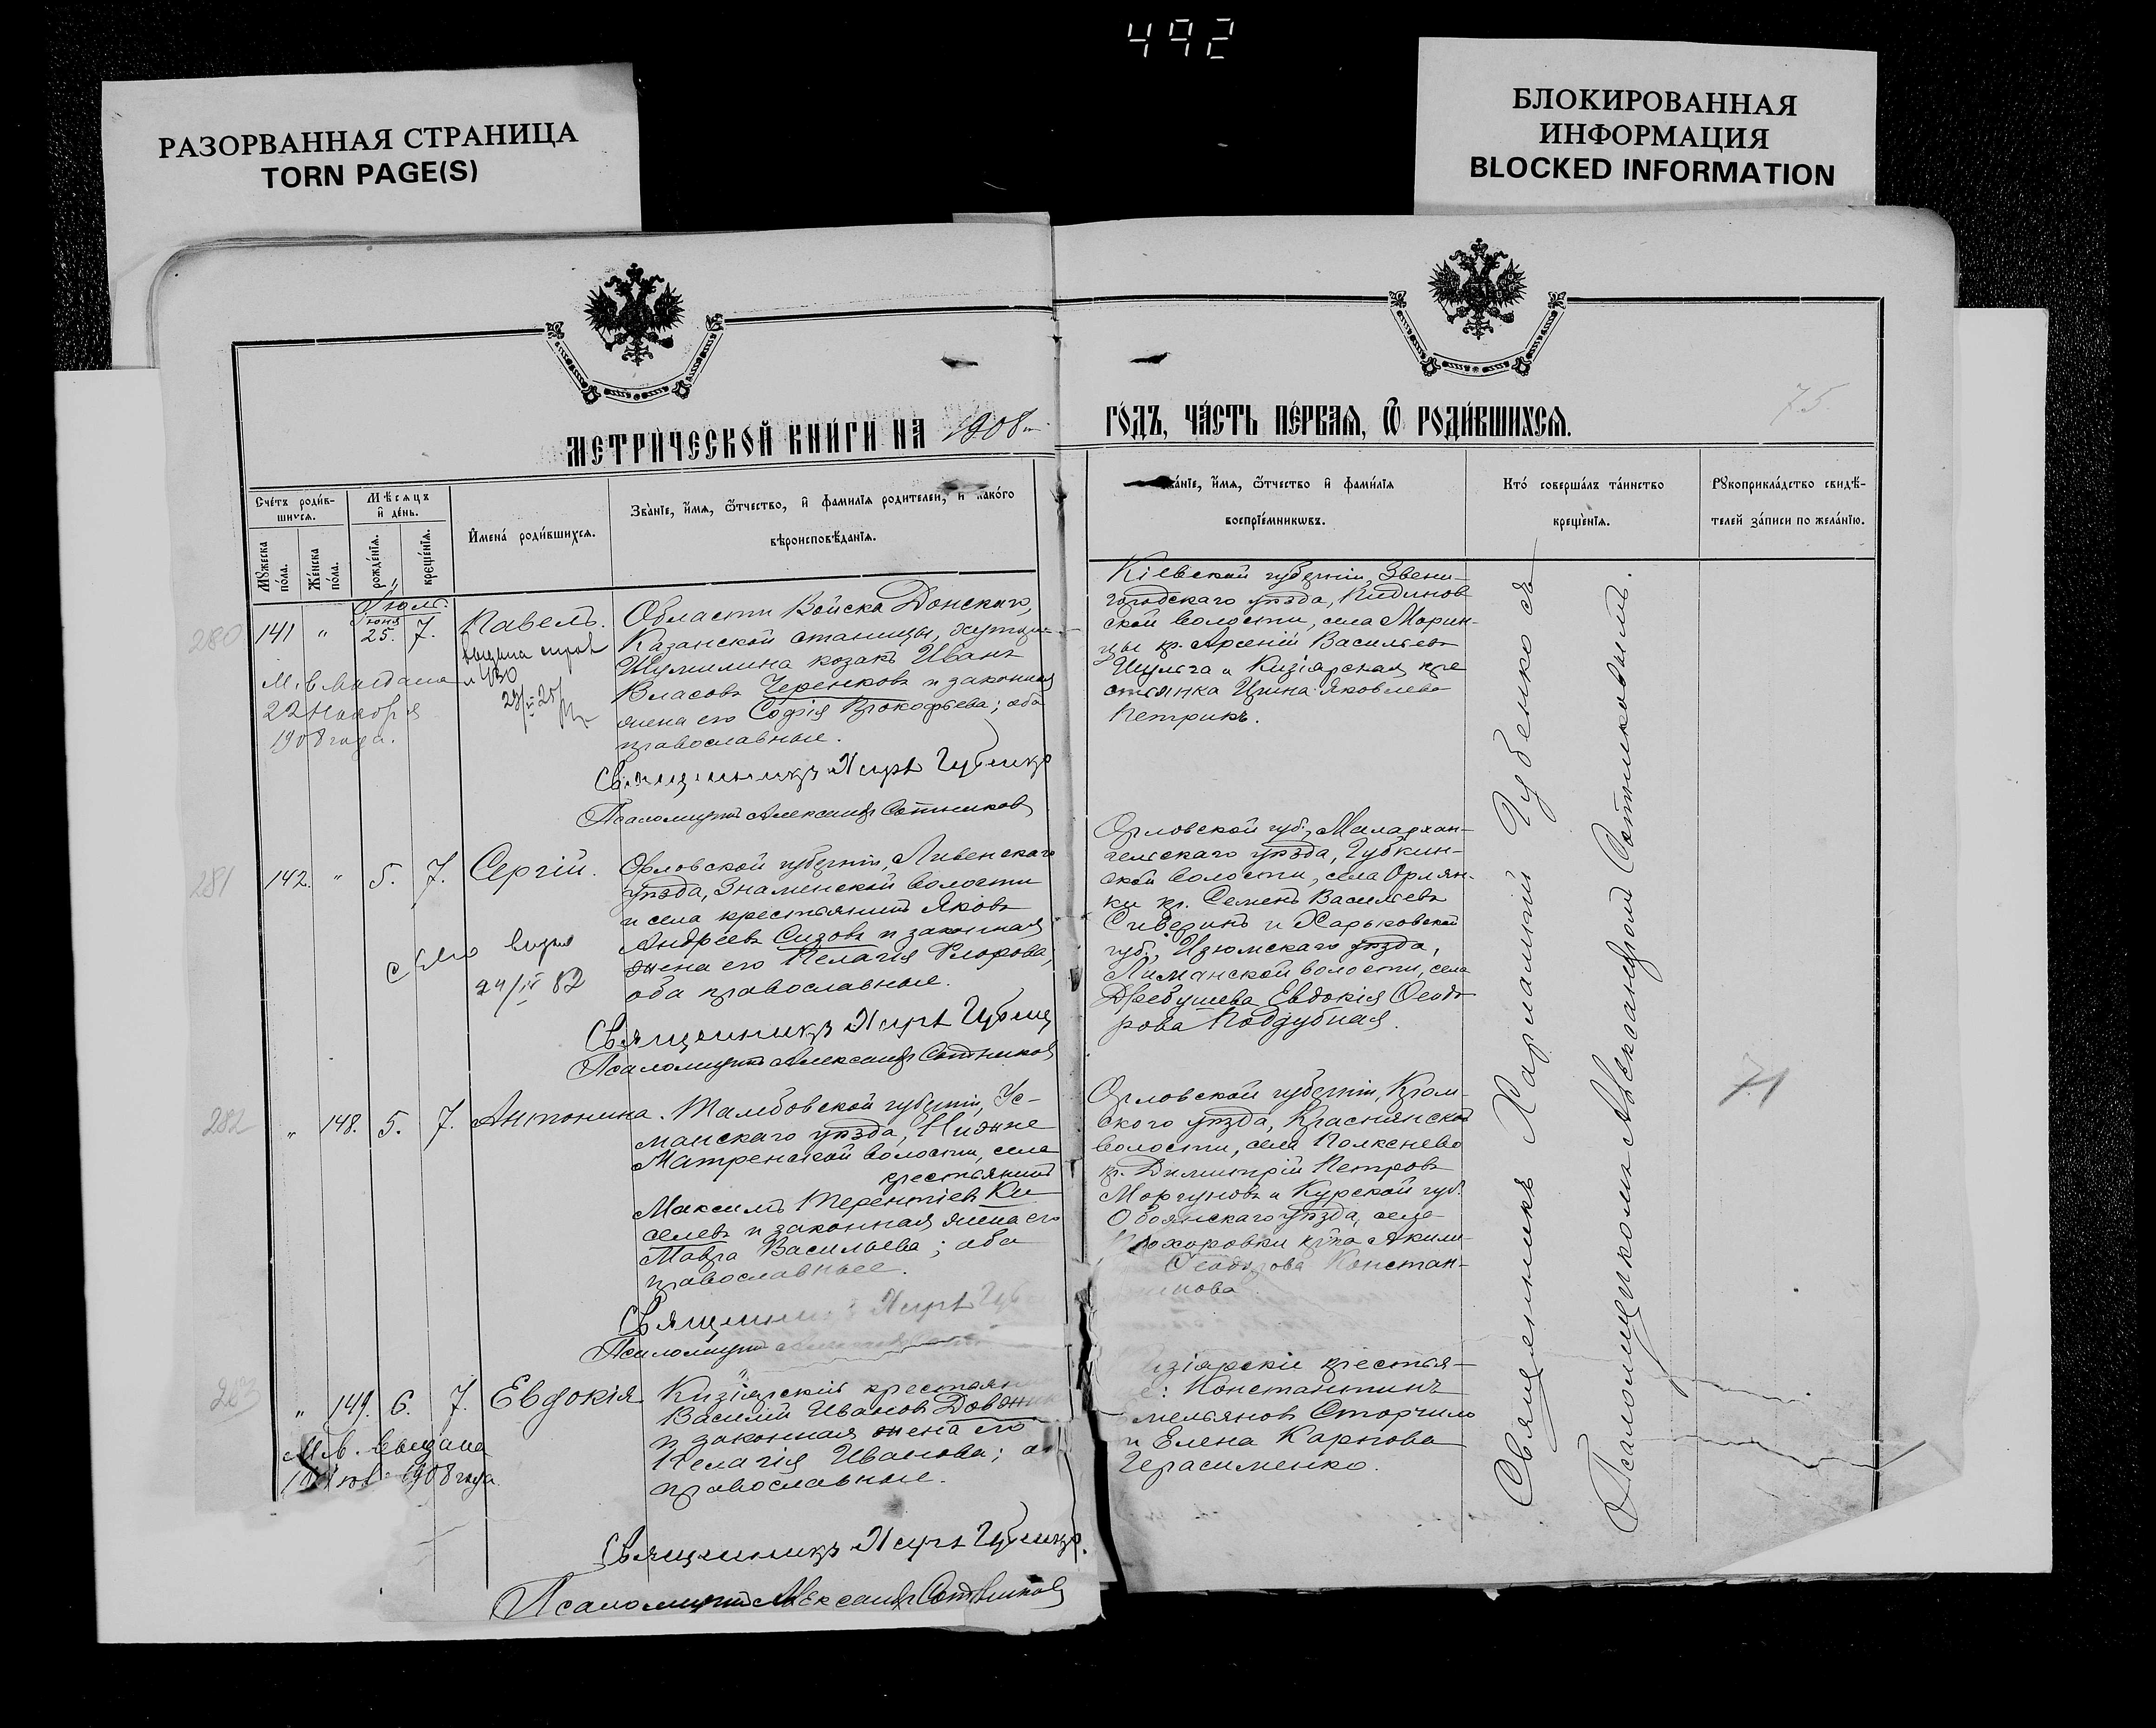 492
РАЗОРВАННАЯ СТРАНИЦА
TORN PAGE(S)
БЛОКИРОВАННАЯ
ИНФОРМАЦИЯ
BLOCKED INFORMATION
75
МЕТРИЧЕСКОЙ КНИГИ НА 1908
ГОДЪ, ЧАСТЬ ПЕРВАЯ, Ѡ РОДИВШИХСЯ.
Счетъ родив-
шихся.
Мужеска
пола.
Женска
пола.
Мѣсяцъ
и день.
рожденїя.
крещенїя.
Имена родившихся.
Званїе, имя, ѿчество, и фамилїя родителей, и какого
вѣроисповѣданїя.
Званїе, имя, ѿчество и фамилїя
воспрїемниковъ.
Кто совершалъ таинство
крещенїя.
Рукоприкладство свидѣ-
телей записи по желанїю.
280
141 " Іюня 25. Іюль. 7.
Павелъ.
М. в. выдана
22 Ноября
1908 года.
Области Войска Донского,
Казанской станицы, хутора
Шумилина козакъ Иванъ
Власовъ Черенковъ и законная
жена его Софія Прокофьева; оба
православные.
Священникъ Харл. Губенко
Псаломщикъ Александръ Сотниковъ
Кіевской губерніи, Звени-
городскаго уѣзда,
ской волости, села Морин-
цы кр. Арсеній Васильевъ
Шульга и Кизіярская кре
стьянка Ирина Яковлева
Петрикъ.
281
142. " 5. 7. Сергій.
24/IV 82
Орловской губерніи, Ливенскаго
уѣзда, Знаменской волости
и села крестьянинъ Яковъ
Андреевъ Сизовъ и законная
жена его Пелагія Флорова;
оба православные.
Священникъ Харл. Губенко
Псаломщикъ Александръ Сотниковъ
Орловской губ., Малоархан-
гельскаго уѣзда, Губкин-
ской волости, села Орлян-
ки кр. Семенъ Васильевъ
Сиверинъ и Харьковской
губ., Изюмскаго уѣзда,
Лиманской волости, села
Евдокія Ѳеодо
рова Поддубная.
282
" 148. 5. 7. Антонина.
Тамбовской губерніи, Ус-
манскаго уѣзда, Нижне
Матренской волости, села
крестьянинъ
Максимъ Терентіевъ Ки-
селевъ и законная жена его
Мавра Васильева; оба
православные.
Священникъ Харл.
Псаломщикъ
Орловской губерніи, Кром-
ского уѣзда,
волости, села
кр. Димитрій Петровъ
Моргуновъ и Курской губ.
Обоянскаго уѣзда, села
Прохоровки кр-ка Акили-
Ѳеодорова Констан-
тинова
71
283
" 149. 6. 7. Евдокія
М. в. выдана
1908 года
Кизіярскій крестьянинъ
Василій Ивановъ
и законная жена его
Пелагія Иванова; оба
православные.
Священникъ Харл. Губенко.
Псаломщикъ Александръ Сотниковъ
Кизіярскіе крестья-
не: Константинъ
Емельяновъ Сторчило
и Елена Карпова
Герасименко.
Священникъ Харлампій Губенко съ
Псаломщикомъ Александромъ Сотниковымъ.